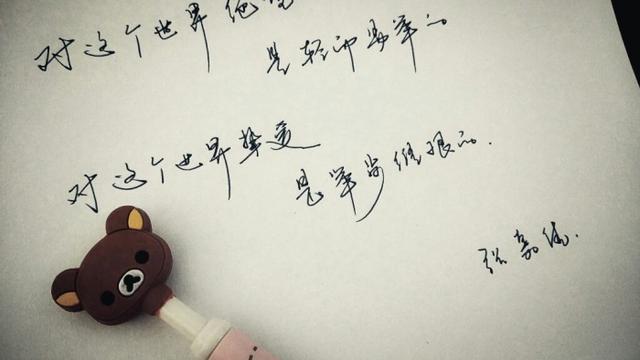 对这个世界绝望
是轻而易举的
对这个世界挚爱
是举步维艰的.
张嘉佳.